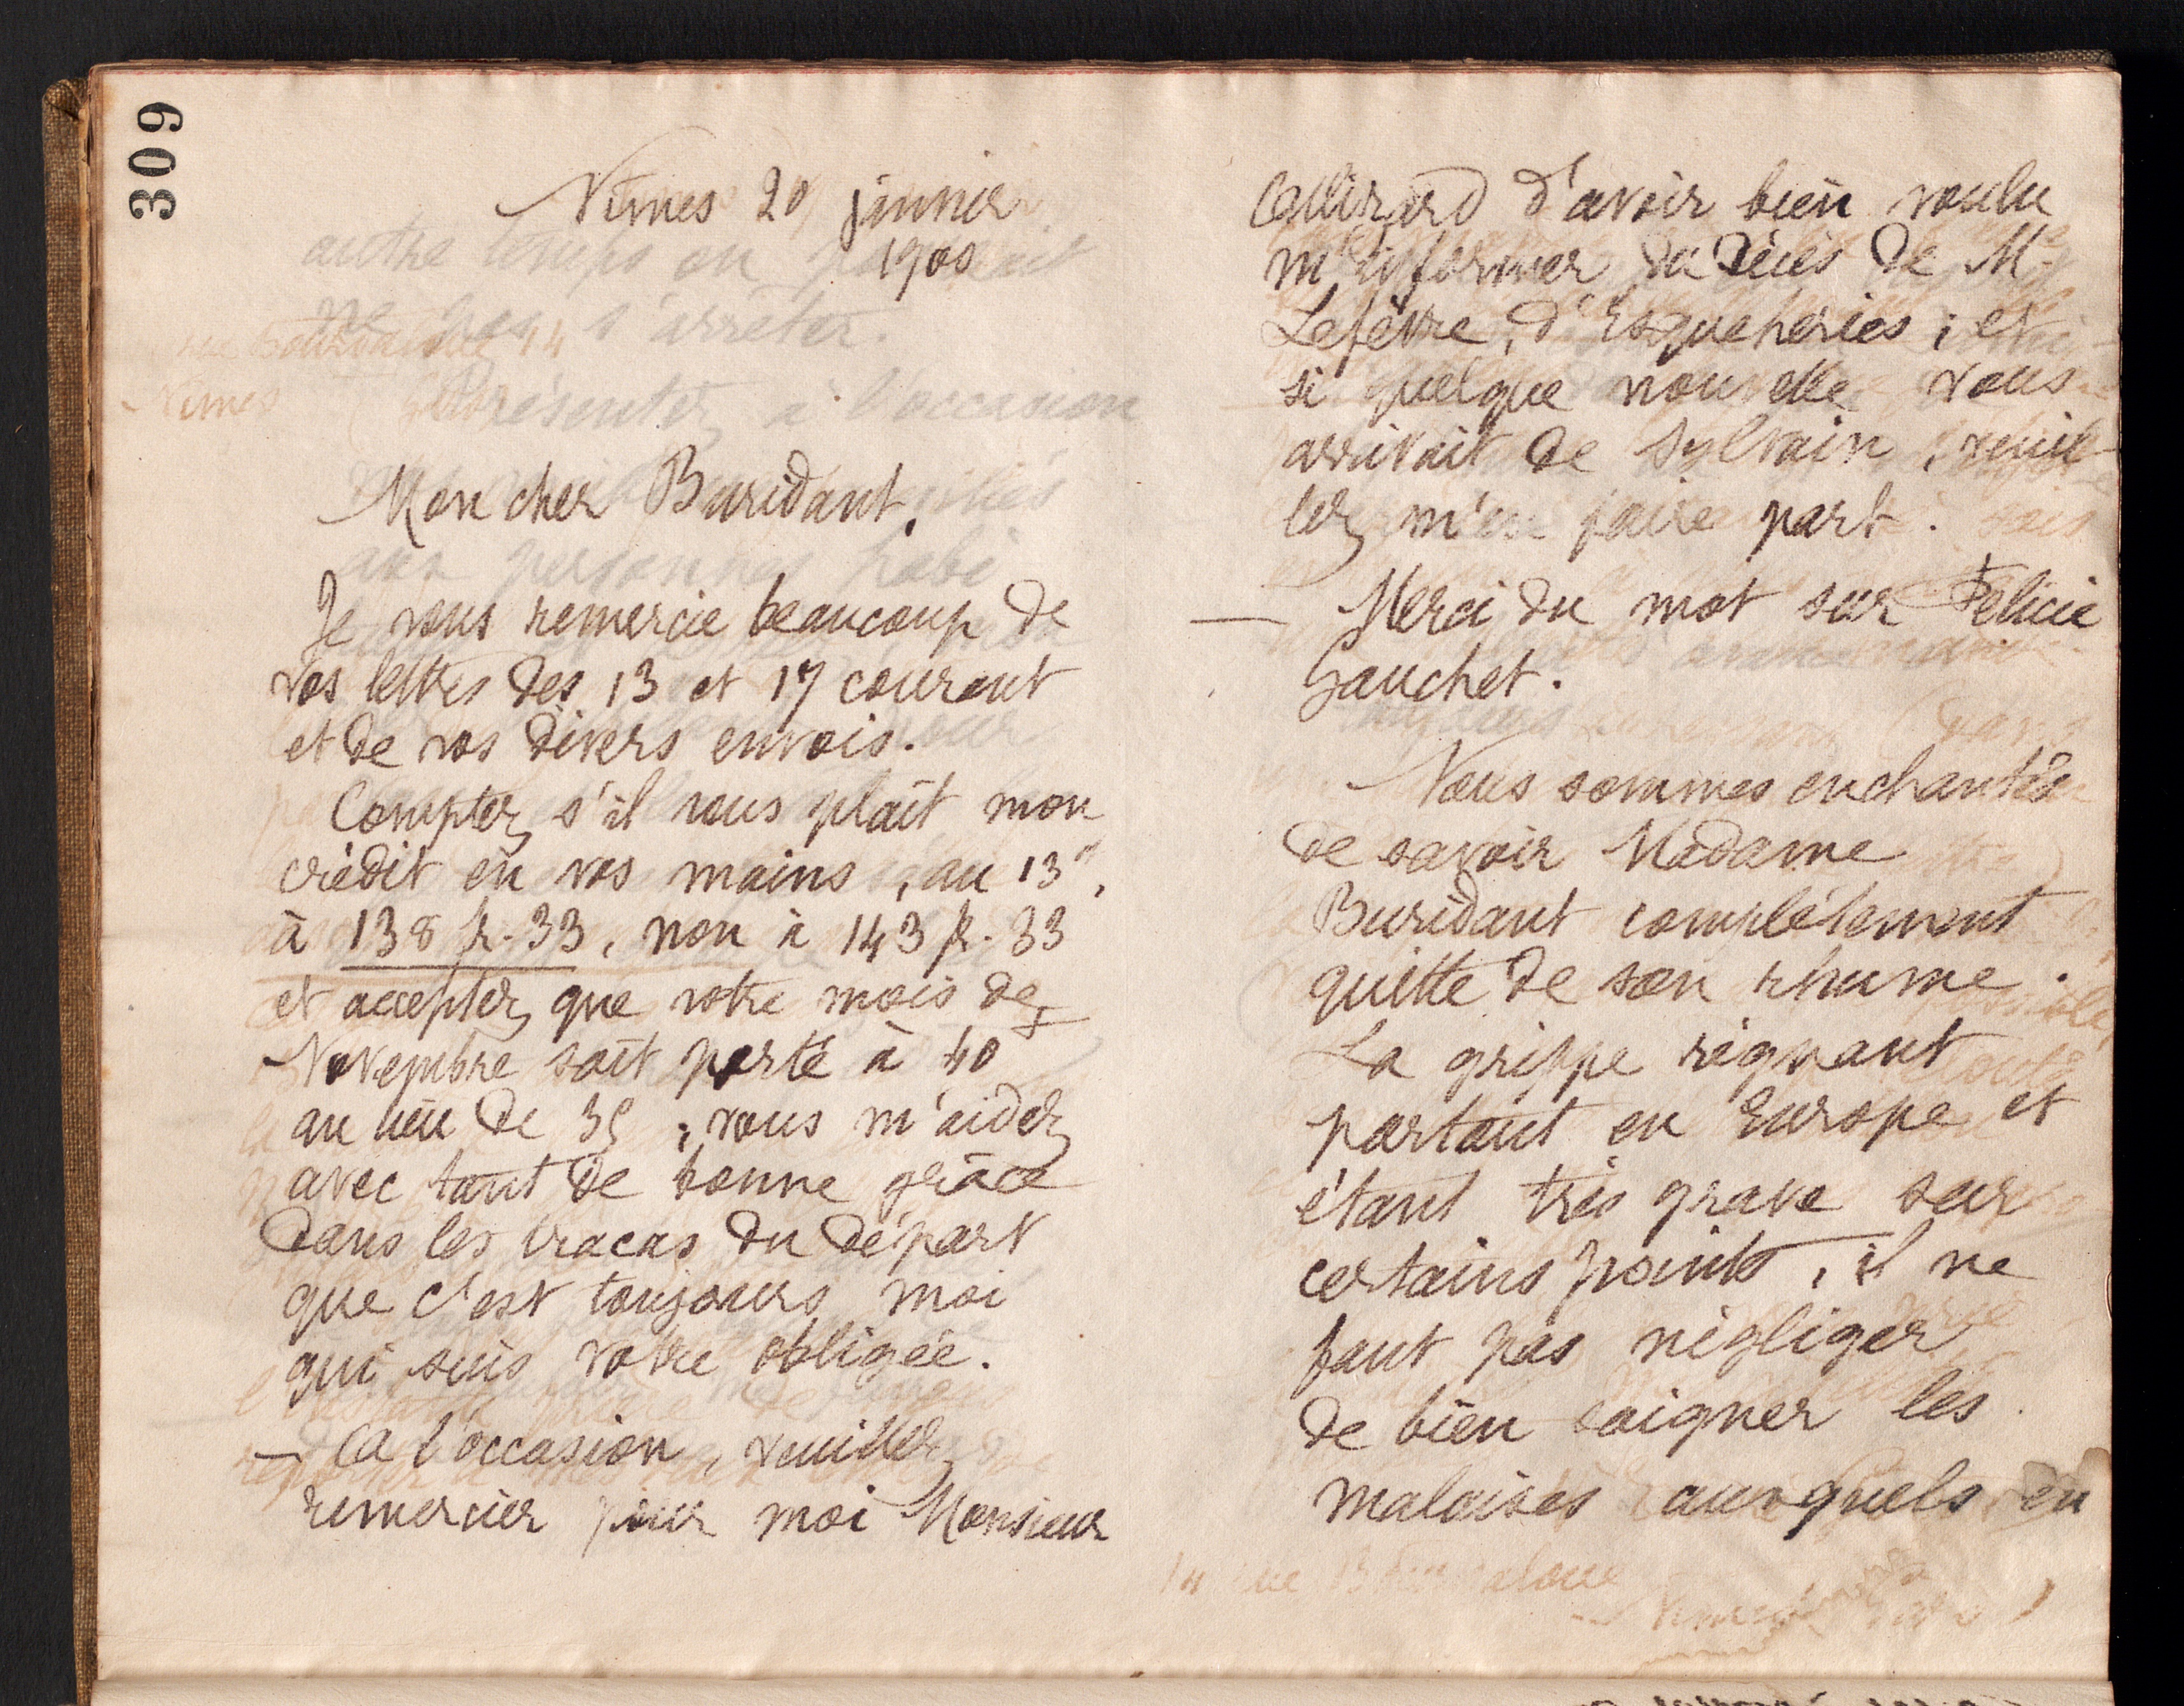 309
Nimes 20 janvier
1900
Mon cher Buridant,
Je vous remercie beaucoup de
vos lettres des 13 et 17 courant
et de vos divers envois.
Comptez s'il vous plaît mon
crédit en vos mains, au 13",
à 138 fr. 33, non à 143 fr. 33
et acceptez que votre mois de
Novembre soit porté à 40 f
au lieu de 35 ; vous m'aidez
avec tant de bonne grâce
dans les tracas du départ
que c'est toujours moi
qui suis votre obligée.
— A l'occasion, veuillez
remercier pour moi Monsieur
Allizard d'avoir bien voulu
m'informer du décès de Mr
Lefèvre, d'Esqueheries ; et
si quelque nouvelle vous
arrivait de Sylvain, veuil-
lez m'en faire part.
— Merci du mot sur Félicie
Gauchet.
Nous sommes enchantés
de savoir Madame
Buridant complètement
quitte de son rhume.
La grippe régnant
partout en Europe et
étant très grave sur
certains points, il ne
faut pas négliger
de bien soigner les
malaises auxquels en
autre temps on
ne pas s'arrêter.
Présentez à l'occasion
aux personnes
14 rue Bourdaloue